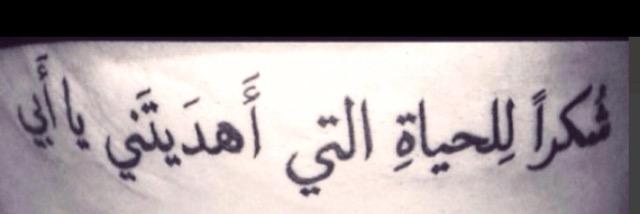 شُكراً لِلحياةِ التي أَهدَيتَني يا أَبي